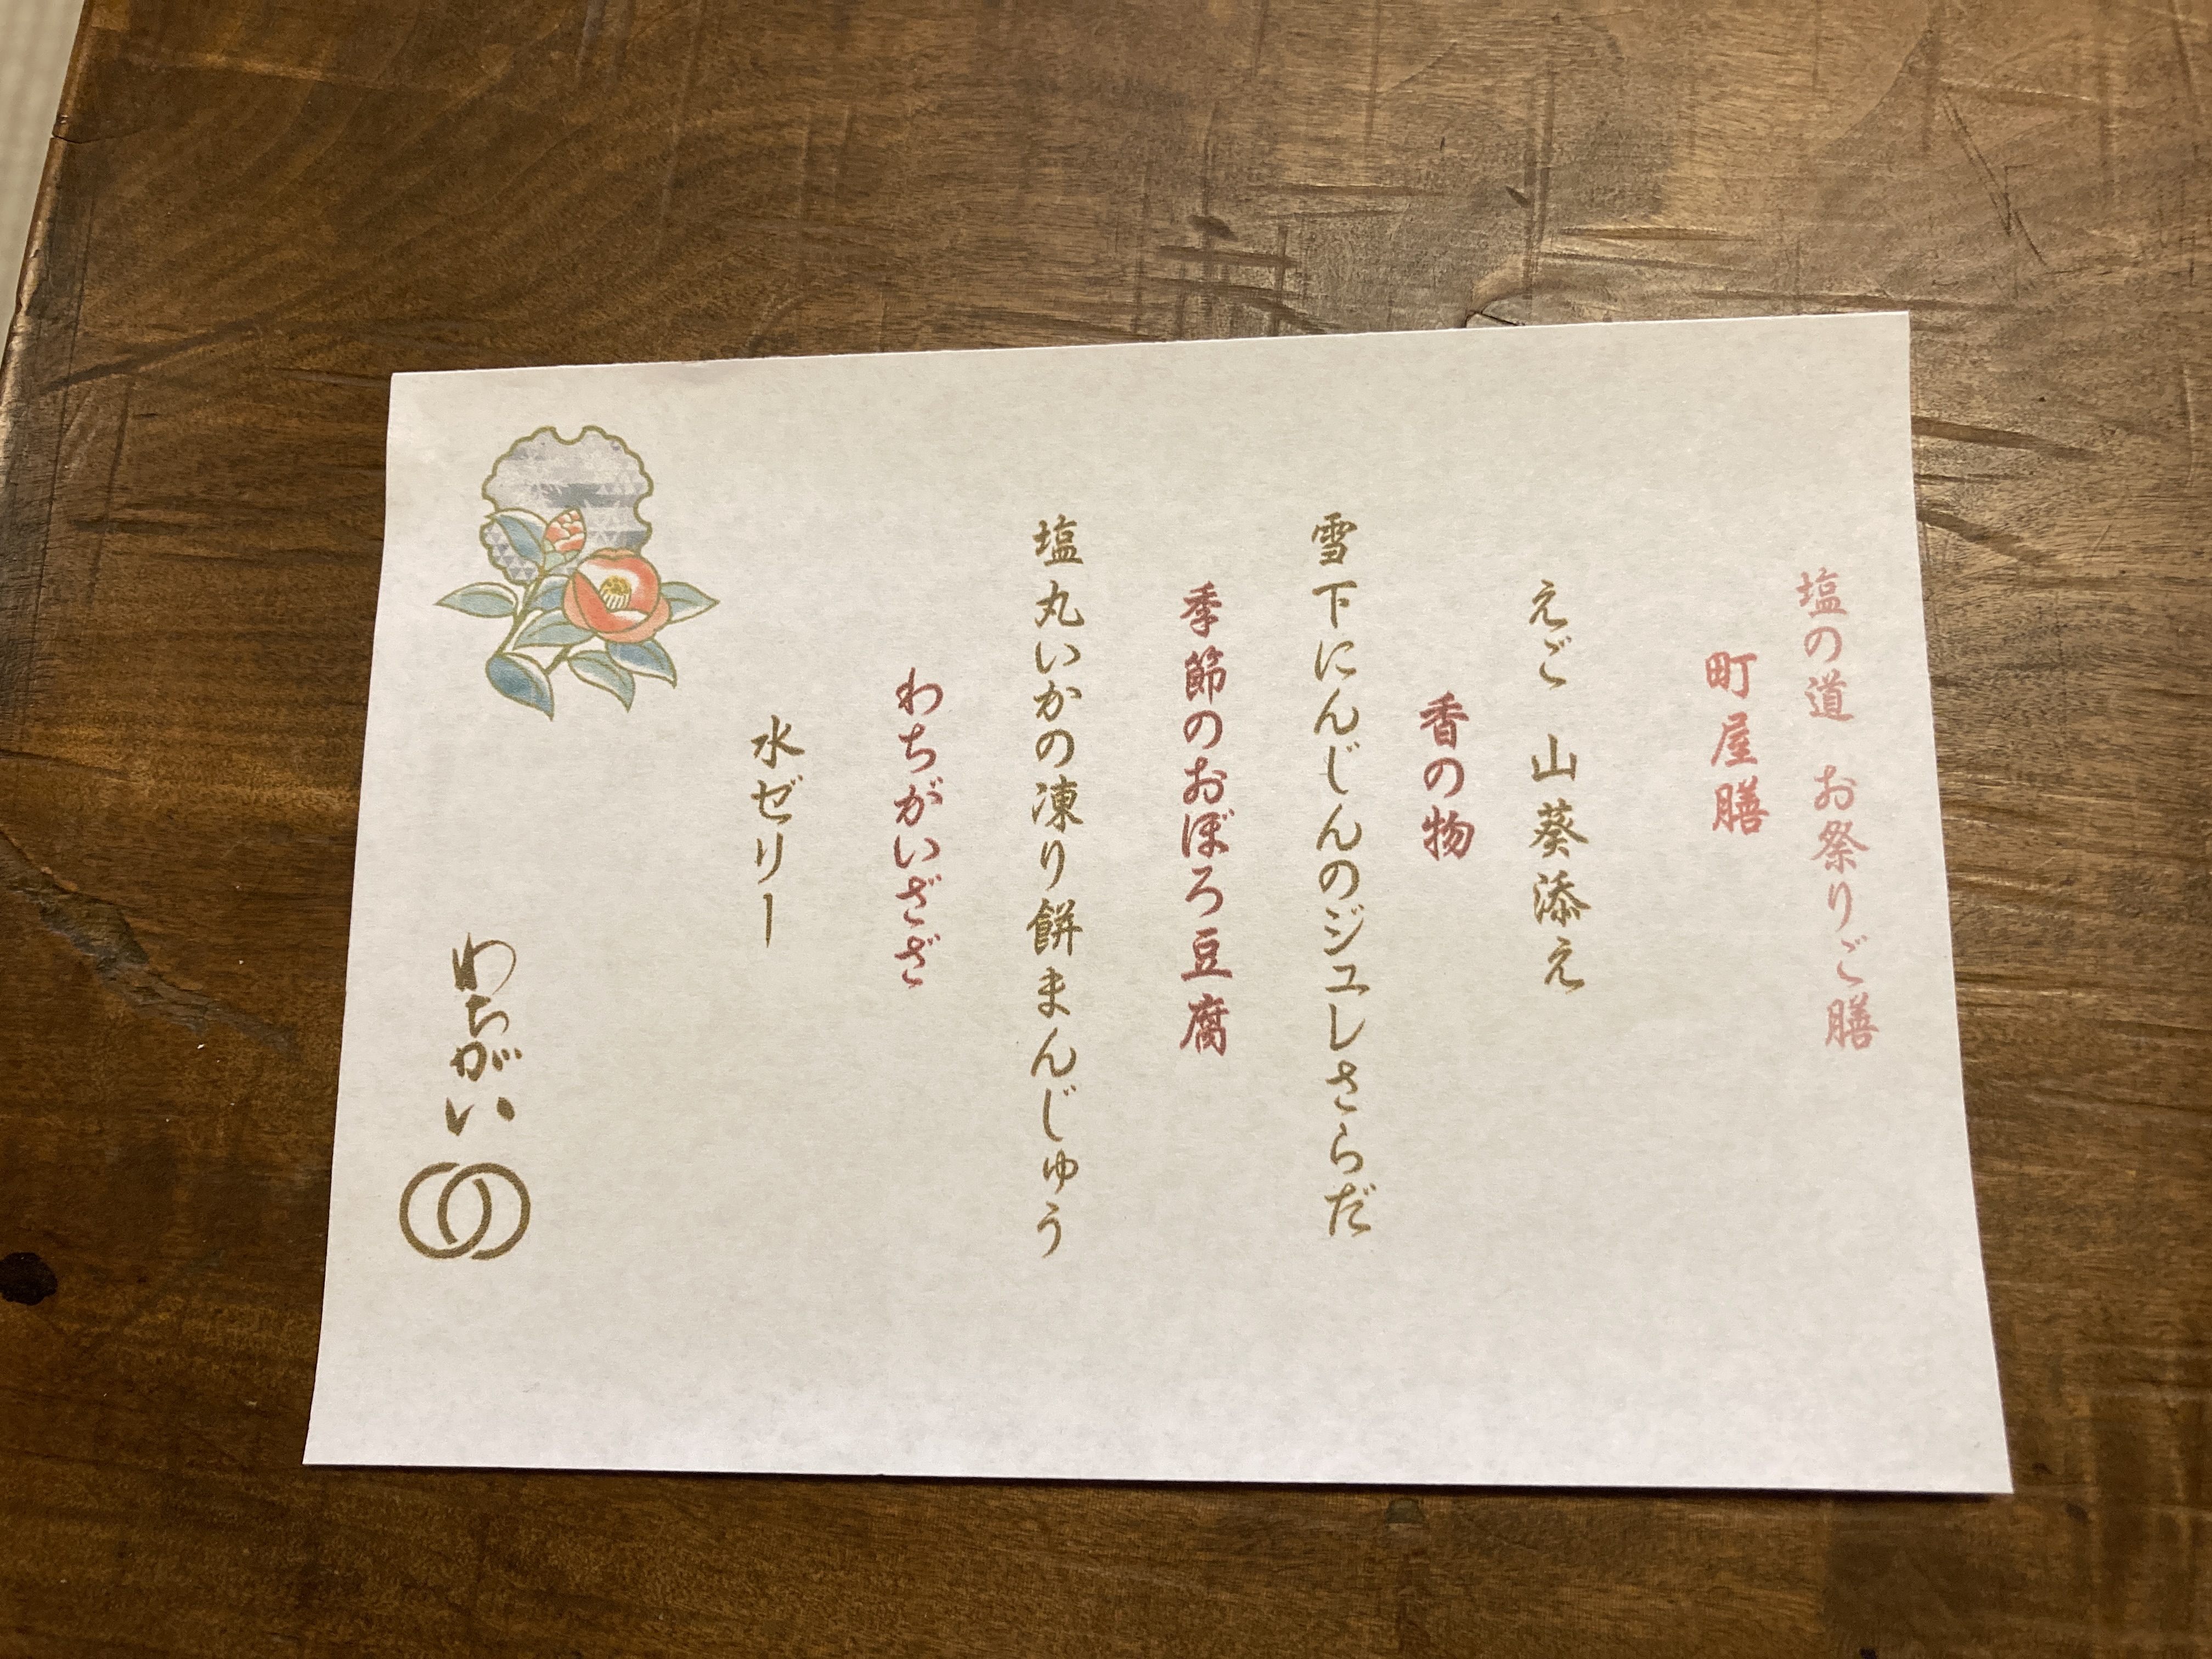 塩の道 お祭りご膳
町屋膳
えご 山葵添え
香の物
雪下にんじんのジュレさらだ
季節のおぼろ豆腐
塩丸いかの凍り餅まんじゅう
わちがいざざ
水ゼリー
わちがい